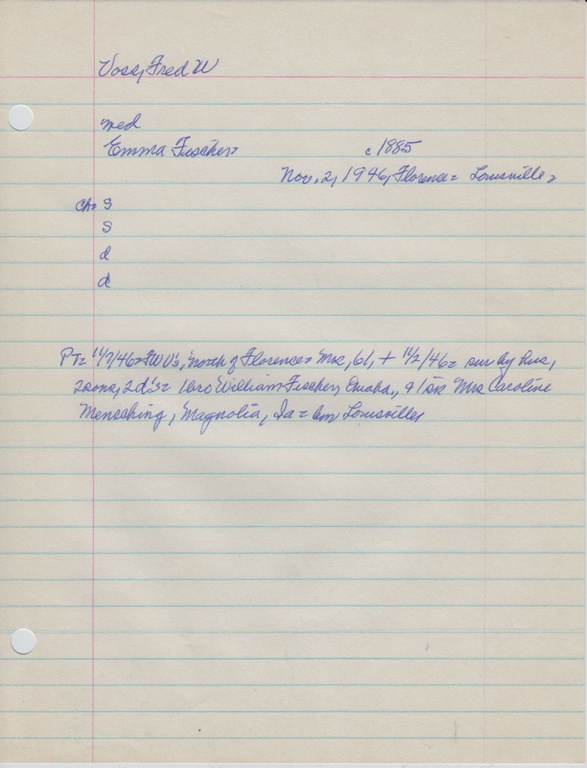 Voss, Fred W
med
Emma Fischer= c1885
Nov. 2, 1946, Florence= Louisville=
ch= s
s
d
d
PT= 11/7/46= FWV's, north of Florence= Mrs, 61, + 11/2/46= sur by hus,
2 sons, 2 d's= 1 bro William Fischer, Omaha, & 1 sis Mrs Caroline
Mensching, Magnolia, Ia= bur Louisville